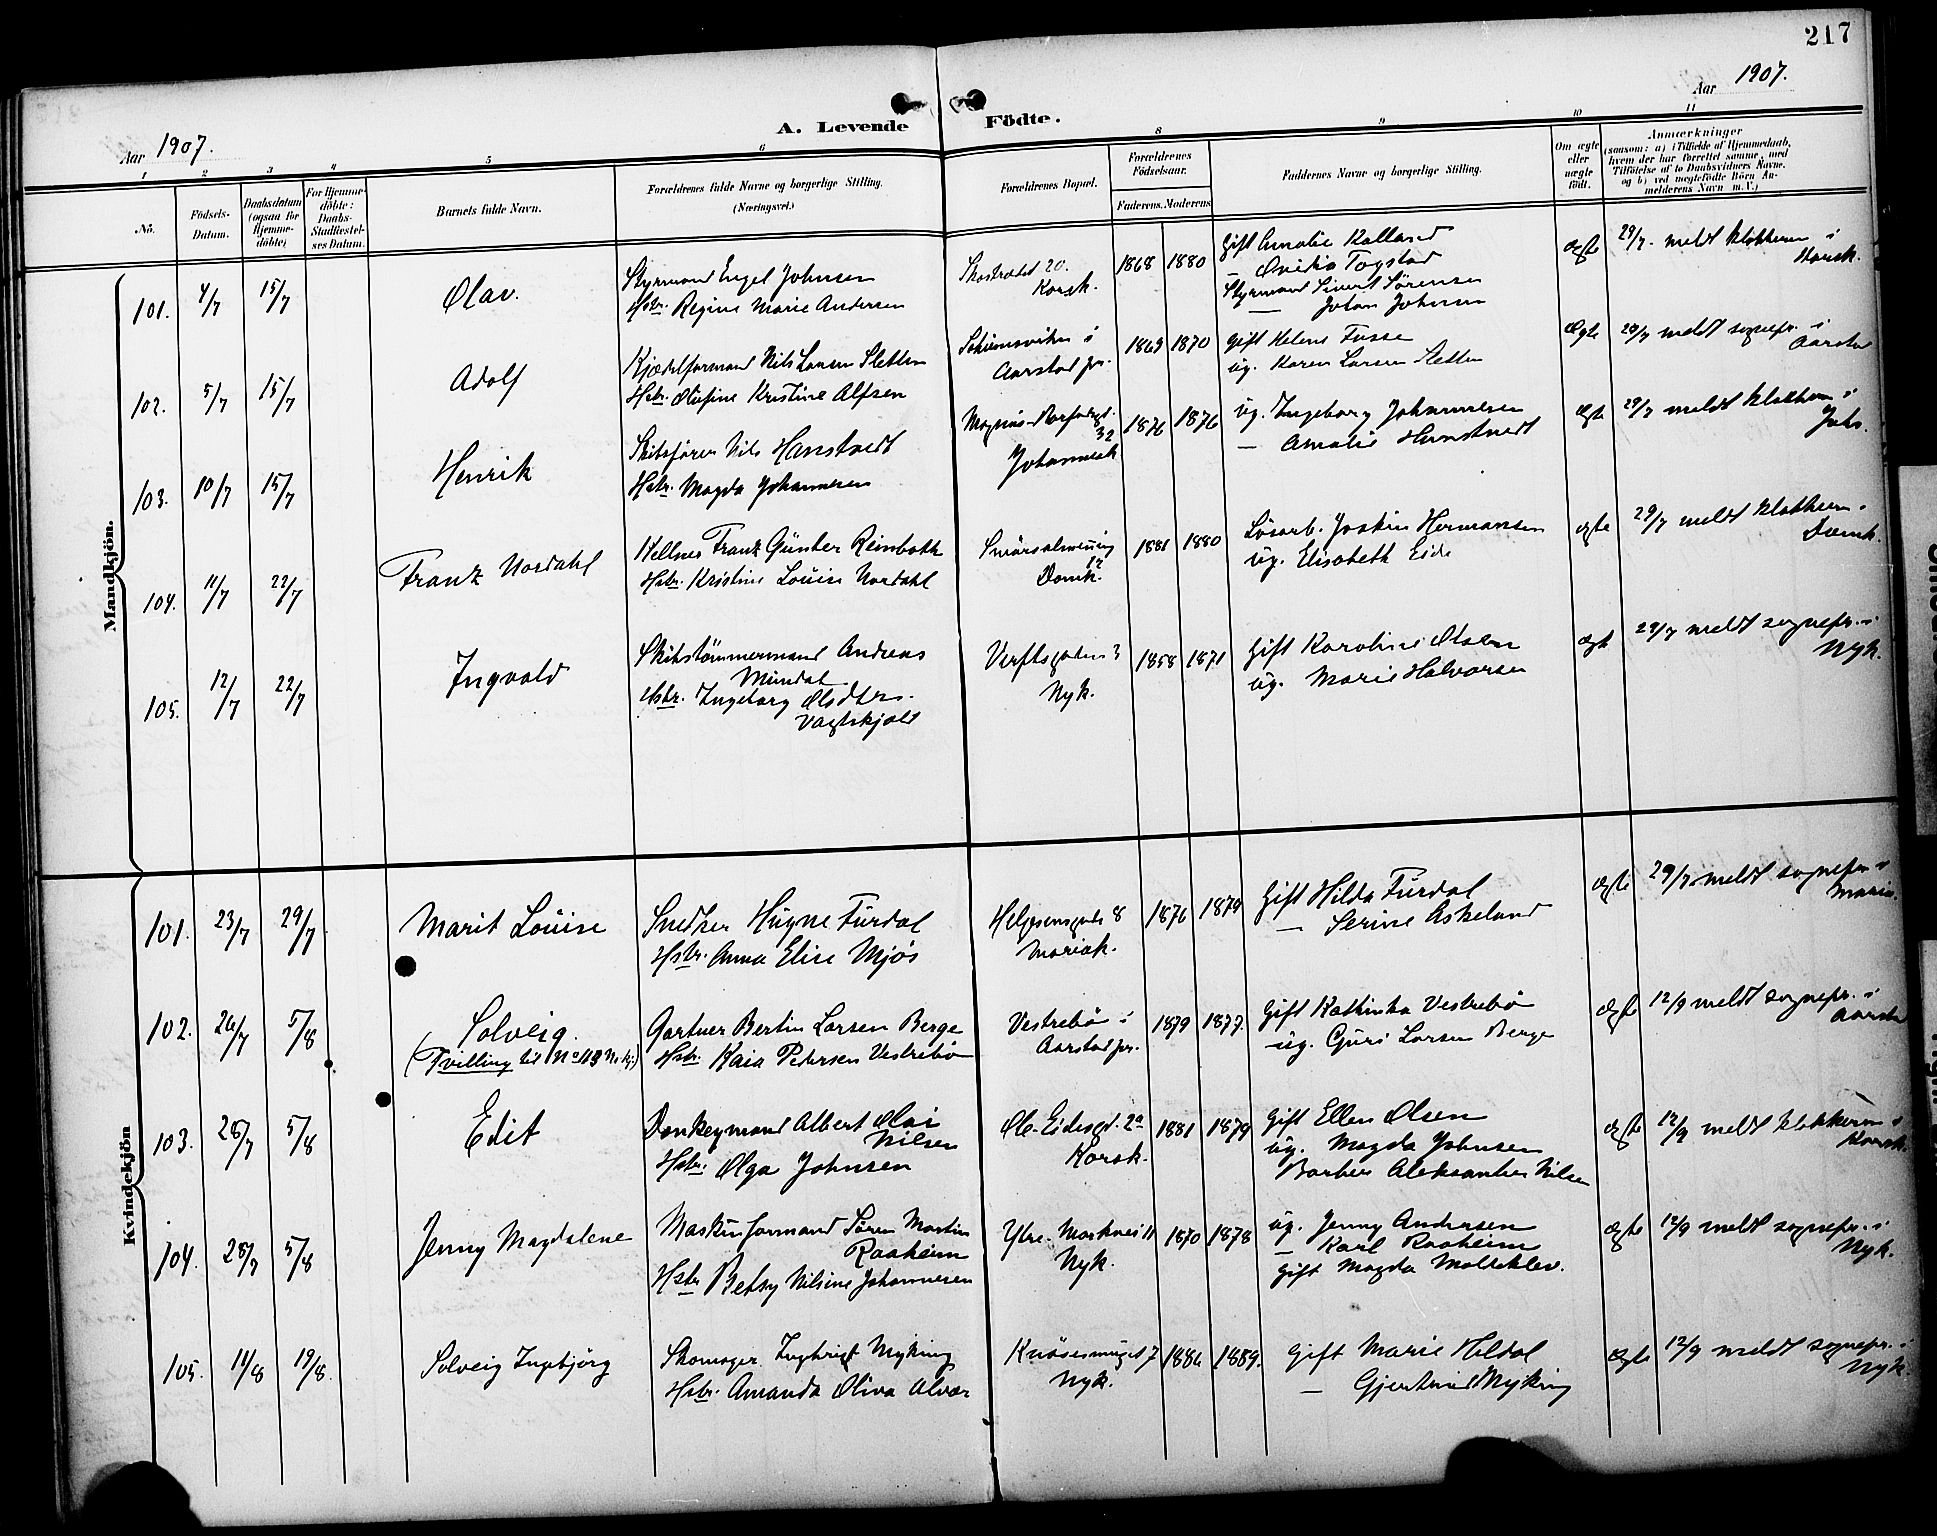 217
Aar 1907.
A. Levende Födte.
Aar 1907.
1 2 3 4 5 6 8 9 10 11
No.
Födsels-
Datum.
Daabsdatum
(ogsaa for
Hjemme-
döbte)
For Hjemme-
döbte:
Daabs-
Stadfæstel-
ses Datum.
Barnets fulde Navn.
Forældrenes fulde Navne og borgerlige Stilling.
(Næringsvei.)
Forældrenes Bopæl.
Forældrenes
Födselsaar.
Faderens. Moderens
Faddernes Navne og borgerlige Stilling.
Om ægte
eller
uægte
født.
Anmærkninger
(saasom: a) i Tilfælde af Hjemmedaab,
hvem der har forrettet samme, med
Tilföielse af to Daabsvidners Navne.
og b) ved uægtefödte Börn An-
melderens Navn m. V.)
Mandkjön.
101. 4/7 15/7
Olav.
Styrmand Engel Johnsen
Hstr. Regine Marie Andersen
Skostrædet 20.
Korsk.
1868 1880
Gift Amalie Kalland
— Ovidia Togstad
Styrmand Sivert Sörensen
— Johan Johnsen
ægte
29/7. meldt klokkeren i
Korsk.
102. 5/7 15/7
Adolf
Kjædelformand Nils Larsen Sletten
Hstr. Olufine Kristine Alfsen
Solheimsviken i
Aarstad pr.
1869 1870
gift Helene Fosse
ug. Karen Larsen Sletten
Ægte
29/7 meldt sognepr. i
Aarstad
103. 10/7 15/7
Henrik
Skibsfører Nils Hanstvedt
Hstr. Magda Johannesen
Magnus Barfodsgt.
32
Johannesk
1876 1876
ug. Ingeborg Johannesen
— Amalie Hanstvedt
ægte
29/7 meldt klokkeren i
Johs.
104. 11/7 22/7
Franz Nordahl
Kellner Franz Günther Reinboth
Hstr. Kristine Louise Nordahl
Smørsalmening
12
Domk.
1881 1880
Løsarb. Joakim Hermansen
ug. Elisabeth Eide
ægte
29/7 meldt klokkeren i
Domk.
105. 12/7 22/7
Ingvald
Skibstømmermand Andreas
Mundal
Hstr. Ingeborg Olsdtr.
Vagtskjold
Verftsgaden 3
Nyk.
1858 1871
Gift Karoline Olsen
ug. Marie Halvorsen
ægte
29/7 meldt sognepr. i
Nyk.
Kvindekjön
101. 23/7 29/7
Marit Louise
Snedker Hugne Furdal
Hstr. Anna Elise Mjøs
Helgesensgade 8
Mariak.
1876 1879
Gift Hilda Furdal
— Serine Askeland
ægte
29/7. meldt sognepr. i
Maria.
102. 26/7 5/8
Solveig.
(Tvilling til No 113 n. s.)
Gartner Bertin Larsen Berge
Hstr. Kaia Petersen Vestrebø
Vestrebø i
Aarstad pr.
1879 1877.
Gift Kathinka Vestrebø
ug. Guri Larsen Berge
Ægte
12/9 meldt sognepr. i
Aarstad
103. 28/7 5/8
Edit
Donkeymand Albert Olai
Nilsen
Hstr. Olga Johnsen
Ole-Eidesgd. 2a
Korsk.
1881 1879
Gift Ellen Olsen
ug. Magda Johnsen
Barber Aleksander Nilsen
ægte
12/9 meldt klokkeren i
Korsk.
104. 28/7 5/8
Jenny Magdalene
Maskinformand Sören Martin
Raaheim
Hstr Betsy Nilsine Johannesen
Ytre-Markevei 11
Nyk.
1870 1878
ug. Jenny Andersen
— Karl Raaheim
Gift Magda Molteklev.
ægte
12/9 meldt sognepr. i
Nyk.
105. 11/8 19/8.
Solveig Ingebjörg
Skomager Ingbrigt Myking
Hstr. Amanda Oliva Alvær
Knösesmuget 7
Nyk.
1886 1889.
Gift Marie Heldal
— Gjertrud Myking
ægte
12/9 meldt sognepr. i
Nyk.